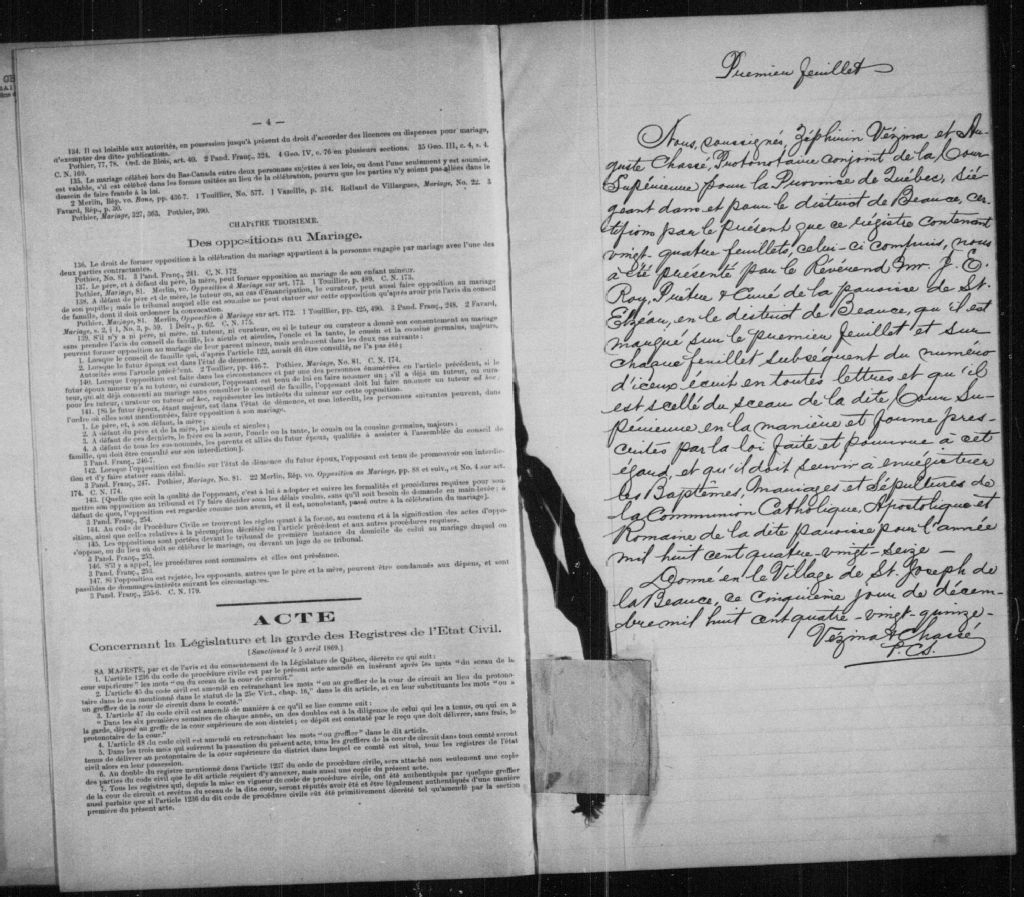 — 4 —
134. Il est loisible aux autorités, en possession jusqu'à présent du droit d'accorder des licences ou dispenses pour mariage,
d'exempter des dites publications.
Pothier, 77, 78. Ord. de Blois, art. 40. 2 Pand. Franç., 324. 4 Geo. IV, c. 76 en plusieurs sections. 35 Geo. III, c. 4, s. 4.
C. N. 169.
135. Le mariage célébré hors du Bas-Canada entre deux personnes sujettes à ses lois, ou dont l'une seulement y est soumise,
est valable, s'il est célébré dans les formes usitées au lieu de la célébration, pourvu que les parties n'y soient pas allées dans le
dessein de faire fraude à la loi.
2 Merlin, Rép. vo. Bans, pp. 436-7. 1 Touillier, No. 577. 1 Vazille, p. 314. Rolland de Villargues, Mariage, No. 22. 3
Favard, Rép., p. 30.
Pothier, Mariage, 327, 363. Pothier, 390.
CHAPITRE TROISIÈME.
Des oppositions au Mariage.
136. Le droit de former opposition à la célébration du mariage appartient à la personne engagée par mariage avec l'une des
deux parties contractantes.
Pothier, No. 81. 3 Pand. Franç., 241. C. N. 172.
137. Le père, et à défaut du père, la mère, peut former opposition au mariage de son enfant mineur.
Pothier, Mariage, 81. Merlin, vo. Opposition à Mariage sur art. 173. 1 Touillier, p. 489. C. N. 173.
138. A défaut de père et de mère, le tuteur ou, au cas d'émancipation, le curateur, peut aussi faire opposition au mariage
de son pupille; mais le tribunal auquel elle est soumise ne peut statuer sur cette opposition qu'après avoir pris l'avis du conseil
de famille, dont il doit ordonner la convocation.
Pothier, Mariage, 81. Merlin, Opposition à Mariage sur art. 172. 1 Touillier, pp. 425, 490. 3 Pand. Franç., 248. 2 Favard,
Mariage, s. 2, § 1, No. 3, p. 59. 1 Delv., p. 62. C. N. 175.
139. S'il n'y a ni père, ni mère, ni tuteur, ni curateur, ou si le tuteur ou curateur a donné son consentement au mariage
sans prendre l'avis du conseil de famille, les aïeuls et aïeules, l'oncle et la tante, le cousin et la cousine germains, majeurs,
peuvent former opposition au mariage de leur parent mineur, mais seulement dans les deux cas suivants:
1. Lorsque le conseil de famille qui, d'après l'article 122, aurait dû être consulté, ne l'a pas été;
2. Lorsque le futur époux est dans l'état de démence.
Autorités sous l'article précédent. 2 Touillier, pp. 446-7. Pothier, Mariage, No. 81. C. N. 174.
140. Lorsque l'opposition est faite dans les circonstances et par une des personnes énumérées en l'article précédent, si le
futur époux mineur n'a ni tuteur, ni curateur, l'opposant est tenu de lui en faire nommer un; s'il a déjà un tuteur, ou cura-
teur, qui ait déjà consenti au mariage sans consulter le conseil de famille, l'opposant doit lui faire nommer un tuteur ad hoc;
pour les tuteur, curateur ou tuteur ad hoc, représenter les intérêts du mineur sur cette opposition.
141. [Si le futur époux, étant majeur, est dans l'état de démence, et non interdit, les personnes suivantes peuvent, dans
l'ordre où elles sont mentionnées, faire opposition à son mariage.
1. Le père, et, à son défaut, la mère;
2. A défaut du père et de la mère, les aïeuls et aïeules;
3. A défaut de ces derniers, le frère ou la sœur, l'oncle ou la tante, le cousin ou la cousine germains, majeurs;
4. A défaut de tous les sus-nommés, les parents et alliés du futur époux, qualifiés à assister à l'assemblée du conseil de
famille, qui doit être consulté sur son interdiction].
3 Pand. Franç., 246-7.
142. Lorsque l'opposition est fondée sur l'état de démence du futur époux, l'opposant est tenu de promouvoir son interdic-
tion et d'y faire statuer sans délai.
3 Pand. Franç., 247. Pothier, Mariage, No. 81. 22 Merlin, Rép. vo. Opposition au Mariage, pp. 88 et suiv., et No. 4 sur art.
174. C. N. 174.
143. [Quelle que soit la qualité de l'opposant, c'est à lui à adopter et suivre les formalités et procédures requises pour sou-
mettre son opposition au tribunal et la faire décider sous les délais voulus, sans qu'il soit besoin de demande en main-levée; à
défaut de quoi, l'opposition est regardée comme non avenu, et il est, nonobstant, passé outre à la célébration du mariage].
3 Pand. Franç., 254.
144. Au code de Procédure Civile se trouvent les règles quant à la forme, au contenu et à la signification des actes d'oppo-
sition, ainsi que celles relatives à la péremption décrétée en l'article précédent et aux autres procédures requises.
145. Les oppositions sont portées devant le tribunal de première instance du domicile de celui au mariage duquel on
s'oppose, ou du lieu où doit se célébrer le mariage, ou devant un juge de ce tribunal.
3 Pand. Franç., 253.
146. S'il y a appel, les procédures sont sommaires et elles ont préséance.
3 Pand. Franç., 253.
147. Si l'opposition est rejetée, les opposants, autres que le père et la mère, peuvent être condamnés aux dépens, et sont
passibles de dommages-intérêts suivant les circonstances.
3 Pand. Franç., 255-6. C. N. 179.
ACTE
Concernant la Législature et la garde des Registres de l'Etat Civil.
[Sanctionné le 5 avril 1869.]
SA MAJESTE, par et de l'avis et du consentement de la Législature de Québec, décrète ce qui suit:
1. L'article 1236 du code de procédure civile est par le présent acte amendé en insérant après les mots "du sceau de la
cour supérieure" les mots "ou du sceau de la cour de circuit."
2. L'article 45 du code civil est amendé en retranchant les mots "ou au greffier de la cour de circuit au lieu du protono-
taire dans le cas mentionné dans le statut de la 25e Vict., chap. 16," dans le dit article, et en leur substituants les mots "ou à
un greffier de la cour de circuit dans le comté."
3. L'article 47 du code civil est amendé de manière à ce qu'il se lise comme suit:
"Dans les six premières semaines de chaque année, un des doubles est à la diligence de celui qui les a tenus, ou qui en a
la garde, déposé au greffe de la cour supérieure de son district; ce dépôt est constaté par le reçu que doit délivrer, sans frais, le
protonotaire de la cour."
4. L'article 48 du code civil est amendé en retranchant les mots "ou greffier" dans le dit article.
5. Dans les trois mois qui suivront la passation du présent acte, tous les greffiers de la cour de circuit dans tout comté seront
tenus de délivrer au protonotaire de la cour supérieure du district dans lequel ce comté est situé, tous les registres de l'état
civil alors en leur possession.
6. Au double du registre mentionné dans l'article 1237 du code de procédure civile, sera attaché non seulement une copie
des parties du code civil que le dit article requiert d'y annexer, mais aussi une copie du présent acte.
7. Tous les registres qui, depuis la mise en vigueur du code de procédure civile, ont été authentiqués par quelque greffier
de la cour de circuit et revêtus du sceau de la dite cour, seront réputés avoir été et être légalement authentiqués d'une manière
aussi parfaite que si l'article 1236 du dit code de procédure civile eût été primitivement décrété tel qu'amendé par la section
première du présent acte.
Premier feuillet
Nous, soussignés, Zéphirin Vézina et Au-
guste Chassé, Protonotaire conjoint de la Cour
Supérieure pour la Province de Québec, sié-
geant dans et pour le district de Beauce, cer-
tifions par le présent que ce régistre contenant
vingt-quatre feuillets, celui-ci compris, nous
a été présenté par le Révérend Mr. J. E.
Roy, Prêtre & Curé de la paroisse de St.
Elzéar, en le district de Beauce, qu'il est
marqué sur le premier feuillet et sur
chaque feuillet subséquent du numéro
d'iceux écrit en toutes lettres et qu'il
est scellé du sceau de la dite Cour Su-
périeure en la manière et forme pres-
crites par la loi faite et pourvue à cet
égard, et qu'il doit servir à enrégistrer
les Baptêmes, Mariages et Sépultures de
la Communion Catholique, Apostolique et
Romaine de la dite paroisse pour l'année
mil huit cent quatre-vingt-seize —
Donné en le Village de St. Joseph de
la Beauce, ce cinquième jour de décem-
bre mil huit cent quatre-vingt-quinze-
Vézina & Chassé
P.C.S.